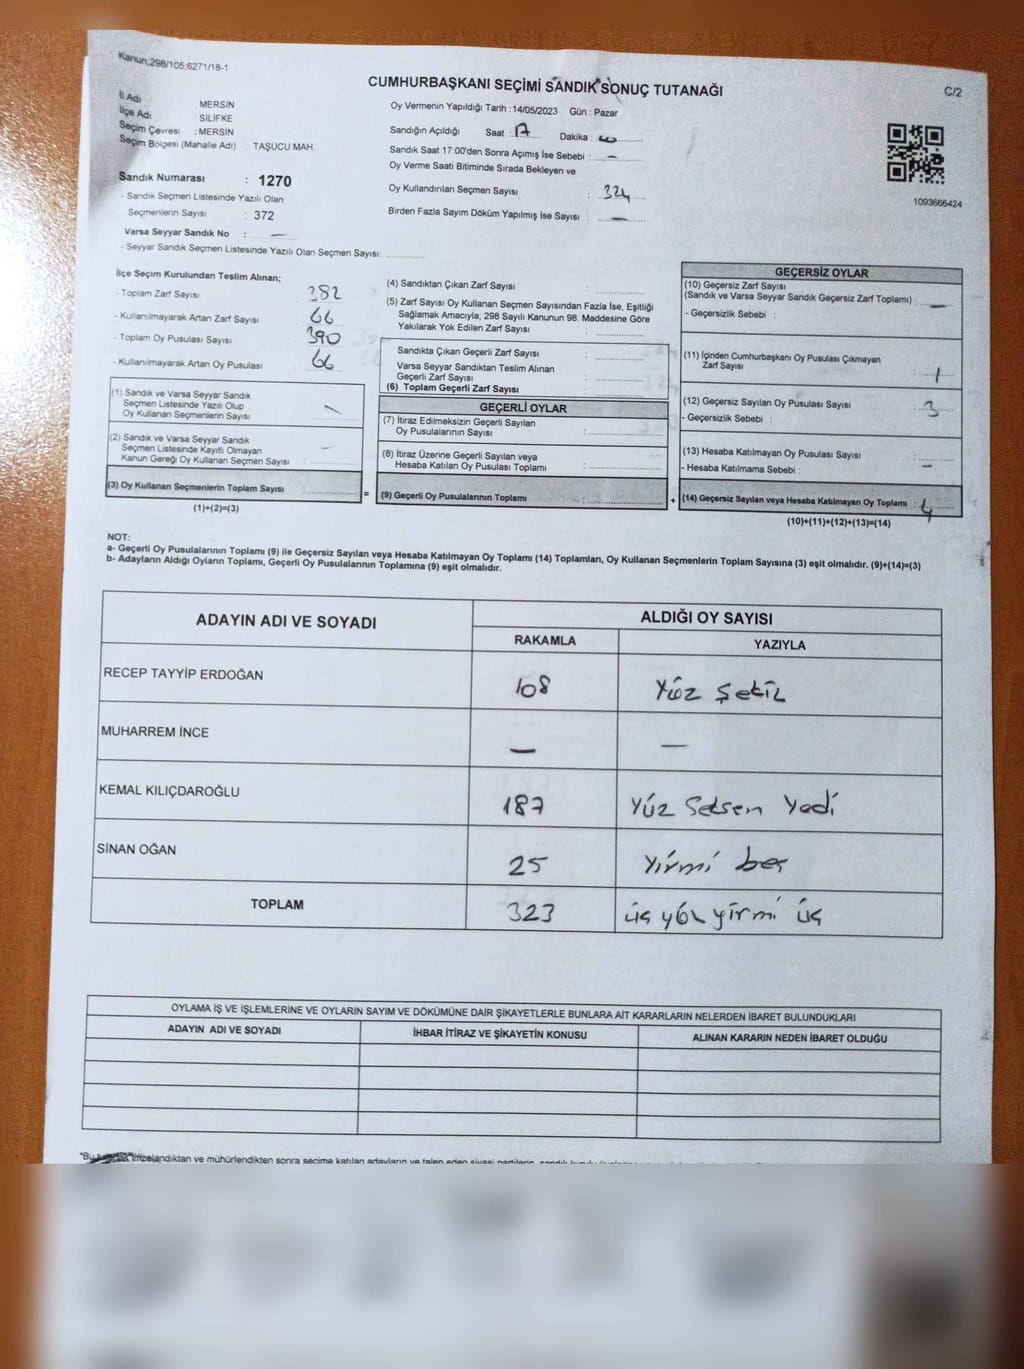 Kanun;298/105;6271/18-1
CUMHURBAŞKANI SEÇİMİ SANDIK SONUÇ TUTANAĞI
C/2
İl Adı MERSİN
İlçe Adı SİLİFKE
Seçim Çevresi : MERSİN
Seçim Bölgesi (Mahalle Adı) TAŞUCU MAH.
Sandık Numarası : 1270
- Sandık Seçmen Listesinde Yazılı Olan
Seçmenlerin Sayısı : 372
Varsa Seyyar Sandık No : —
- Seyyar Sandık Seçmen Listesinde Yazılı Olan Seçmen Sayısı:
Oy Vermenin Yapıldığı Tarih :14/05/2023 Gün : Pazar
Sandığın Açıldığı Saat : 17 Dakika :
Sandık Saat 17:00'den Sonra Açımış İse Sebebi : —
Oy Verme Saati Bitiminde Sırada Bekleyen ve
Oy Kullandırılan Seçmen Sayısı : 324
Birden Fazla Sayım Döküm Yapılmış İse Sayısı : —
1093666424
İlçe Seçim Kurulundan Teslim Alınan;
- Toplam Zarf Sayısı : 382
- Kullanılmayarak Artan Zarf Sayısı : 66
- Toplam Oy Pusulası Sayısı : 390
- Kullanılmayarak Artan Oy Pusulası : 66
(1) Sandık ve Varsa Seyyar Sandık
Seçmen Listesinde Yazılı Olup
Oy Kullanan Seçmenlerin Sayısı : —
(2) Sandık ve Varsa Seyyar Sandık
Seçmen Listesinde Kayıtlı Olmayan
Kanun Gereği Oy Kullanan Seçmen Sayısı : —
(3) Oy Kullanan Seçmenlerin Toplam Sayısı :
(1)+(2)=(3)
=
(4) Sandıktan Çıkan Zarf Sayısı :
(5) Zarf Sayısı Oy Kullanan Seçmen Sayısından Fazla İse, Eşitliği
Sağlamak Amacıyla, 298 Sayılı Kanunun 98. Maddesine Göre
Yakılarak Yok Edilen Zarf Sayısı :
Sandıkta Çıkan Geçerli Zarf Sayısı :
Varsa Seyyar Sandıktan Teslim Alınan
Geçerli Zarf Sayısı :
(6) Toplam Geçerli Zarf Sayısı :
GEÇERLİ OYLAR
(7) İtiraz Edilmeksizin Geçerli Sayılan
Oy Pusulalarının Sayısı :
(8) İtiraz Üzerine Geçerli Sayılan veya
Hesaba Katılan Oy Pusulası Toplamı :
(9) Geçerli Oy Pusulalarının Toplamı :
+
GEÇERSİZ OYLAR
(10) Geçersiz Zarf Sayısı
(Sandık ve Varsa Seyyar Sandık Geçersiz Zarf Toplamı) : —
- Geçersizlik Sebebi :
(11) İçinden Cumhurbaşkanı Oy Pusulası Çıkmayan
Zarf Sayısı : 1
(12) Geçersiz Sayılan Oy Pusulası Sayısı : 3
- Geçersizlik Sebebi :
(13) Hesaba Katılmayan Oy Pusulası Sayısı : —
- Hesaba Katılmama Sebebi :
(14) Geçersiz Sayılan veya Hesaba Katılmayan Oy Toplamı : 4
(10)+(11)+(12)+(13)=(14)
NOT:
a- Geçerli Oy Pusulalarının Toplamı (9) ile Geçersiz Sayılan veya Hesaba Katılmayan Oy Toplamı (14) Toplamları, Oy Kullanan Seçmenlerin Toplam Sayısına (3) eşit olmalıdır. (9)+(14)=(3)
b- Adayların Aldığı Oyların Toplamı, Geçerli Oy Pusulalarının Toplamına (9) eşit olmalıdır.
ADAYIN ADI VE SOYADI
ALDIĞI OY SAYISI
RAKAMLA YAZIYLA
RECEP TAYYİP ERDOĞAN 108 Yüz Şekiz
MUHARREM İNCE — —
KEMAL KILIÇDAROĞLU 187 Yüz Seksen Yedi
SİNAN OĞAN 25 Yirmi beş
TOPLAM 323 üç yüz yirmi üç
OYLAMA İŞ VE İŞLEMLERİNE VE OYLARIN SAYIM VE DÖKÜMÜNE DAİR ŞİKAYETLERLE BUNLARA AİT KARARLARIN NELERDEN İBARET BULUNDUKLARI
ADAYIN ADI VE SOYADI İHBAR İTİRAZ VE ŞİKAYETİN KONUSU ALINAN KARARIN NEDEN İBARET OLDUĞU
imzalandıktan ve mühürlendikten sonra seçime katılan adayların ve talep eden siyasi partilerin